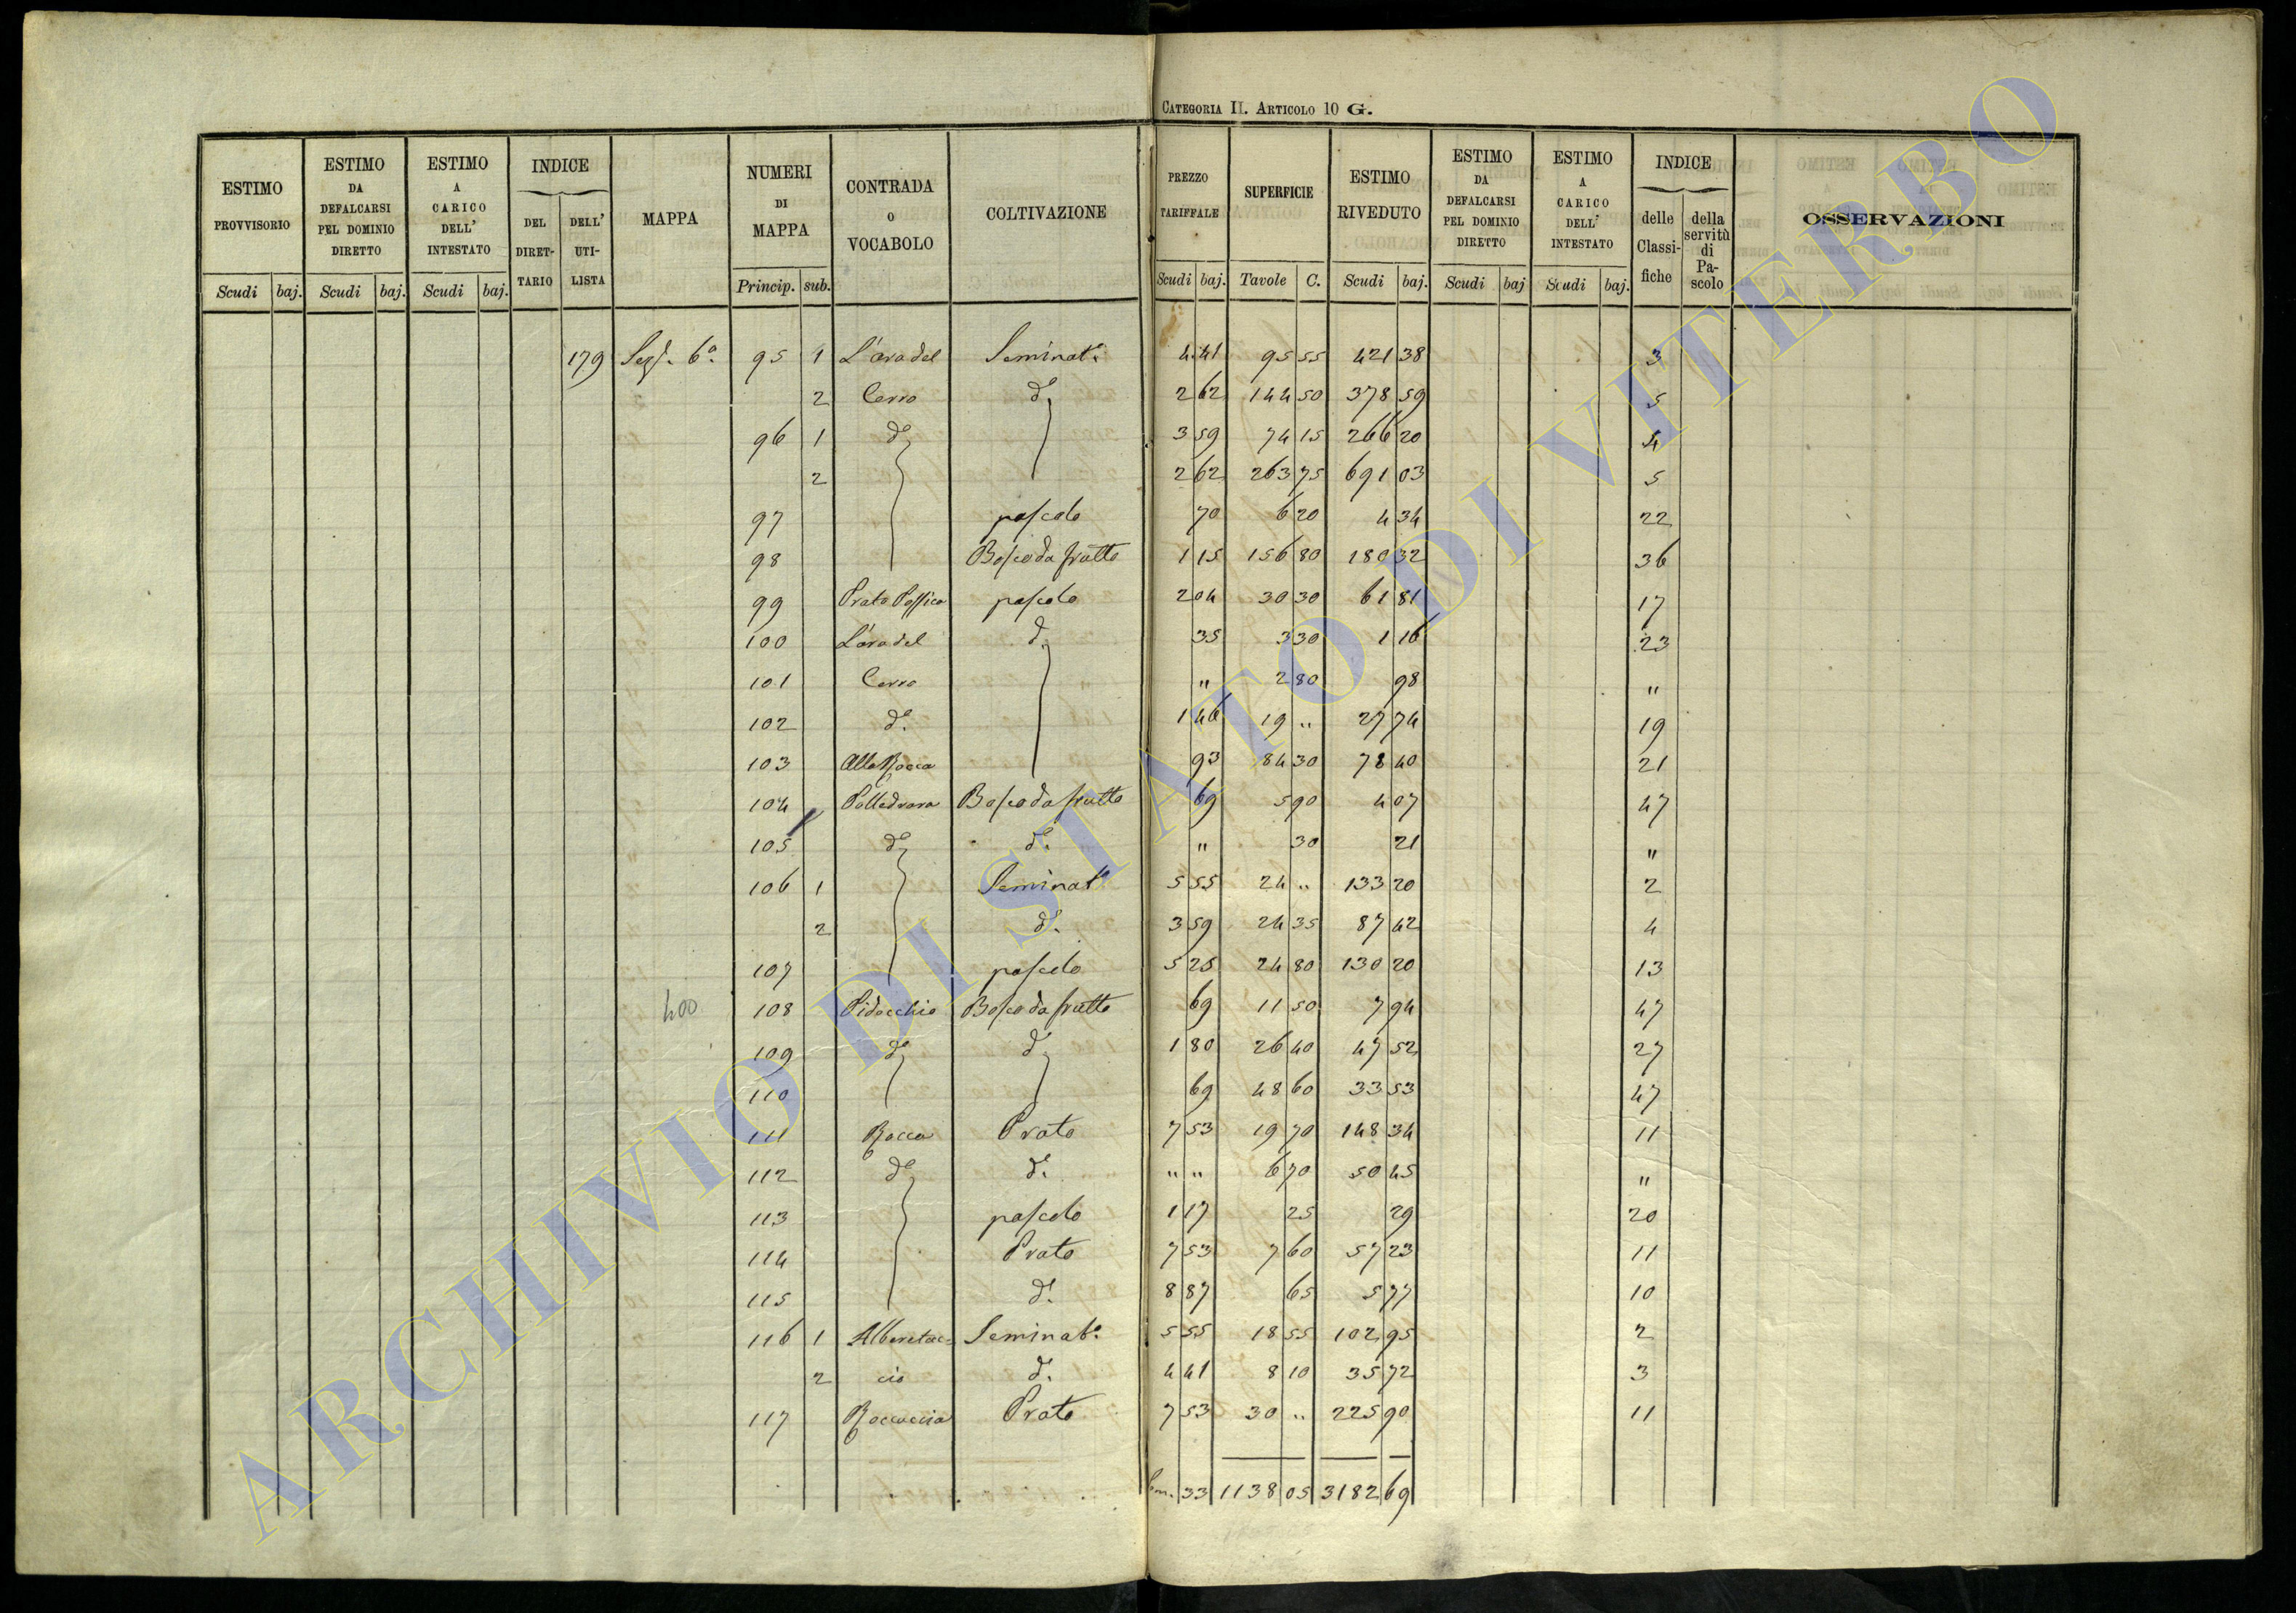 CATEGORIA II. ARTICOLO 10 G.
ESTIMO PROVVISORIO Scudi baj. | ESTIMO DA DEFALCARSI PEL DOMINIO DIRETTO Scudi baj. | ESTIMO A CARICO DELL' INTESTATO Scudi baj. | INDICE DEL DIRET-TARIO | DELL' UTI-LISTA | MAPPA | NUMERI DI MAPPA Princip. sub. | CONTRADA O VOCABOLO | COLTIVAZIONE | PREZZO TARIFFALE Scudi baj. | SUPERFICIE Tavole C. | ESTIMO RIVEDUTO Scudi baj. | ESTIMO DA DEFALCARSI PEL DOMINIO DIRETTO Scudi baj | ESTIMO A CARICO DELL' INTESTATO Scudi baj. | INDICE delle Classi-fiche | della servitù di Pa-scolo | OSSERVAZIONI
179 6ª 95 1 L'ara del Seminat.º 4 41 95 55 421 38 3
2 Cerro d.º 2 62 144 50 378 59 5
96 1 d.º 3 59 74 15 266 20 4
2 2 62 263 75 691 03 5
97 pascolo 70 6 20 4 34 22
98 Bosco da frutto 1 15 156 80 180 32 36
99 Prato pascolo 2 04 30 30 61 81 17
100 L'ara del d.º 35 3 30 1 16 23
101 Cerro " 2 80 98 "
102 d.º 1 46 19 " 27 74 19
103 Alla Rocca 93 84 30 78 40 21
104 Polledrara Bosco da frutto 69 5 90 4 07 47
105 d.º d.º " 30 21 "
106 1 Seminat.º 5 55 24 " 133 20 2
2 d.º 3 59 24 35 87 42 4
107 pascolo 5 25 24 80 130 20 13
400 108 Pidocchio Bosco da frutto 69 11 50 7 94 47
109 d.º d.º 1 80 26 40 47 52 27
110 69 48 60 33 53 47
111 Rocca Prato 7 53 19 70 148 34 11
112 d.º d.º " " 6 70 50 45 "
113 pascolo 1 17 25 29 20
114 Prato 7 53 7 60 57 23 11
115 d.º 8 87 65 5 77 10
116 1 Alberetac= Seminat.º 5 55 18 55 102 95 2
2 cio d.º 4 41 8 10 35 72 3
117 Roccaccia Prato 7 53 30 " 225 90 11
33 1138 05 3182 69
ARCHIVIO DI STATO DI VITERBO